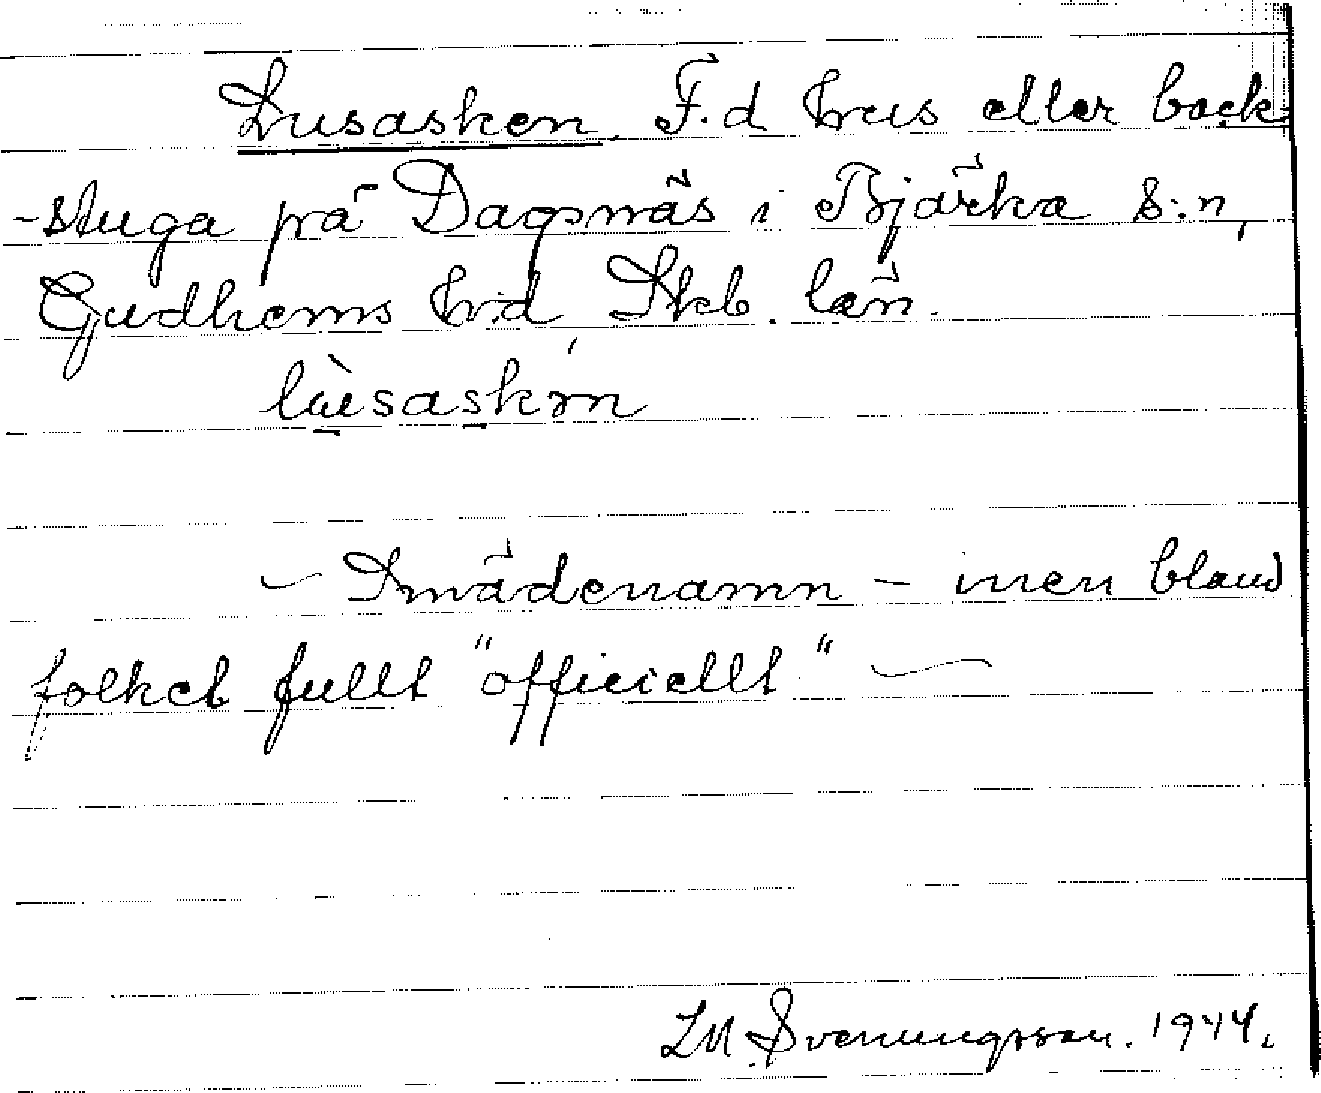 Lusasken. F.d hus eller back-
-stuga på Dagsnäs i Bjärka s:n,
Gudhems hd Skb. län.
lùsaskɩ́n
~ Smädenamn – men bland
folket fullt "officiellt" ~
L M. Svenungsson. 1944.